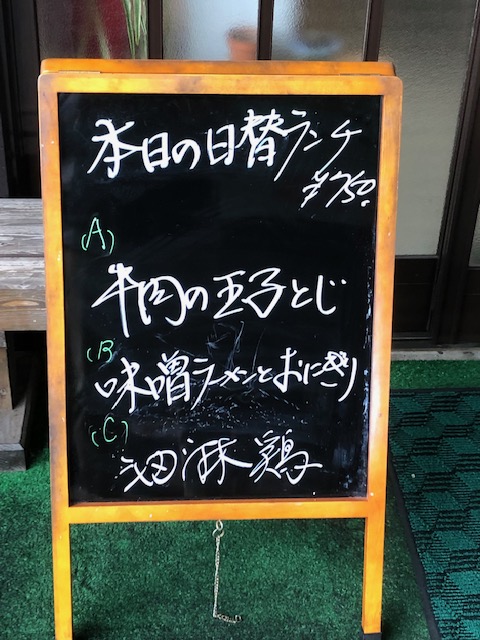 本日の日替ランチ
¥750.
(A)
牛肉の玉子とじ
(B
味噌ラーメンとおにぎり
(C)
油淋鶏